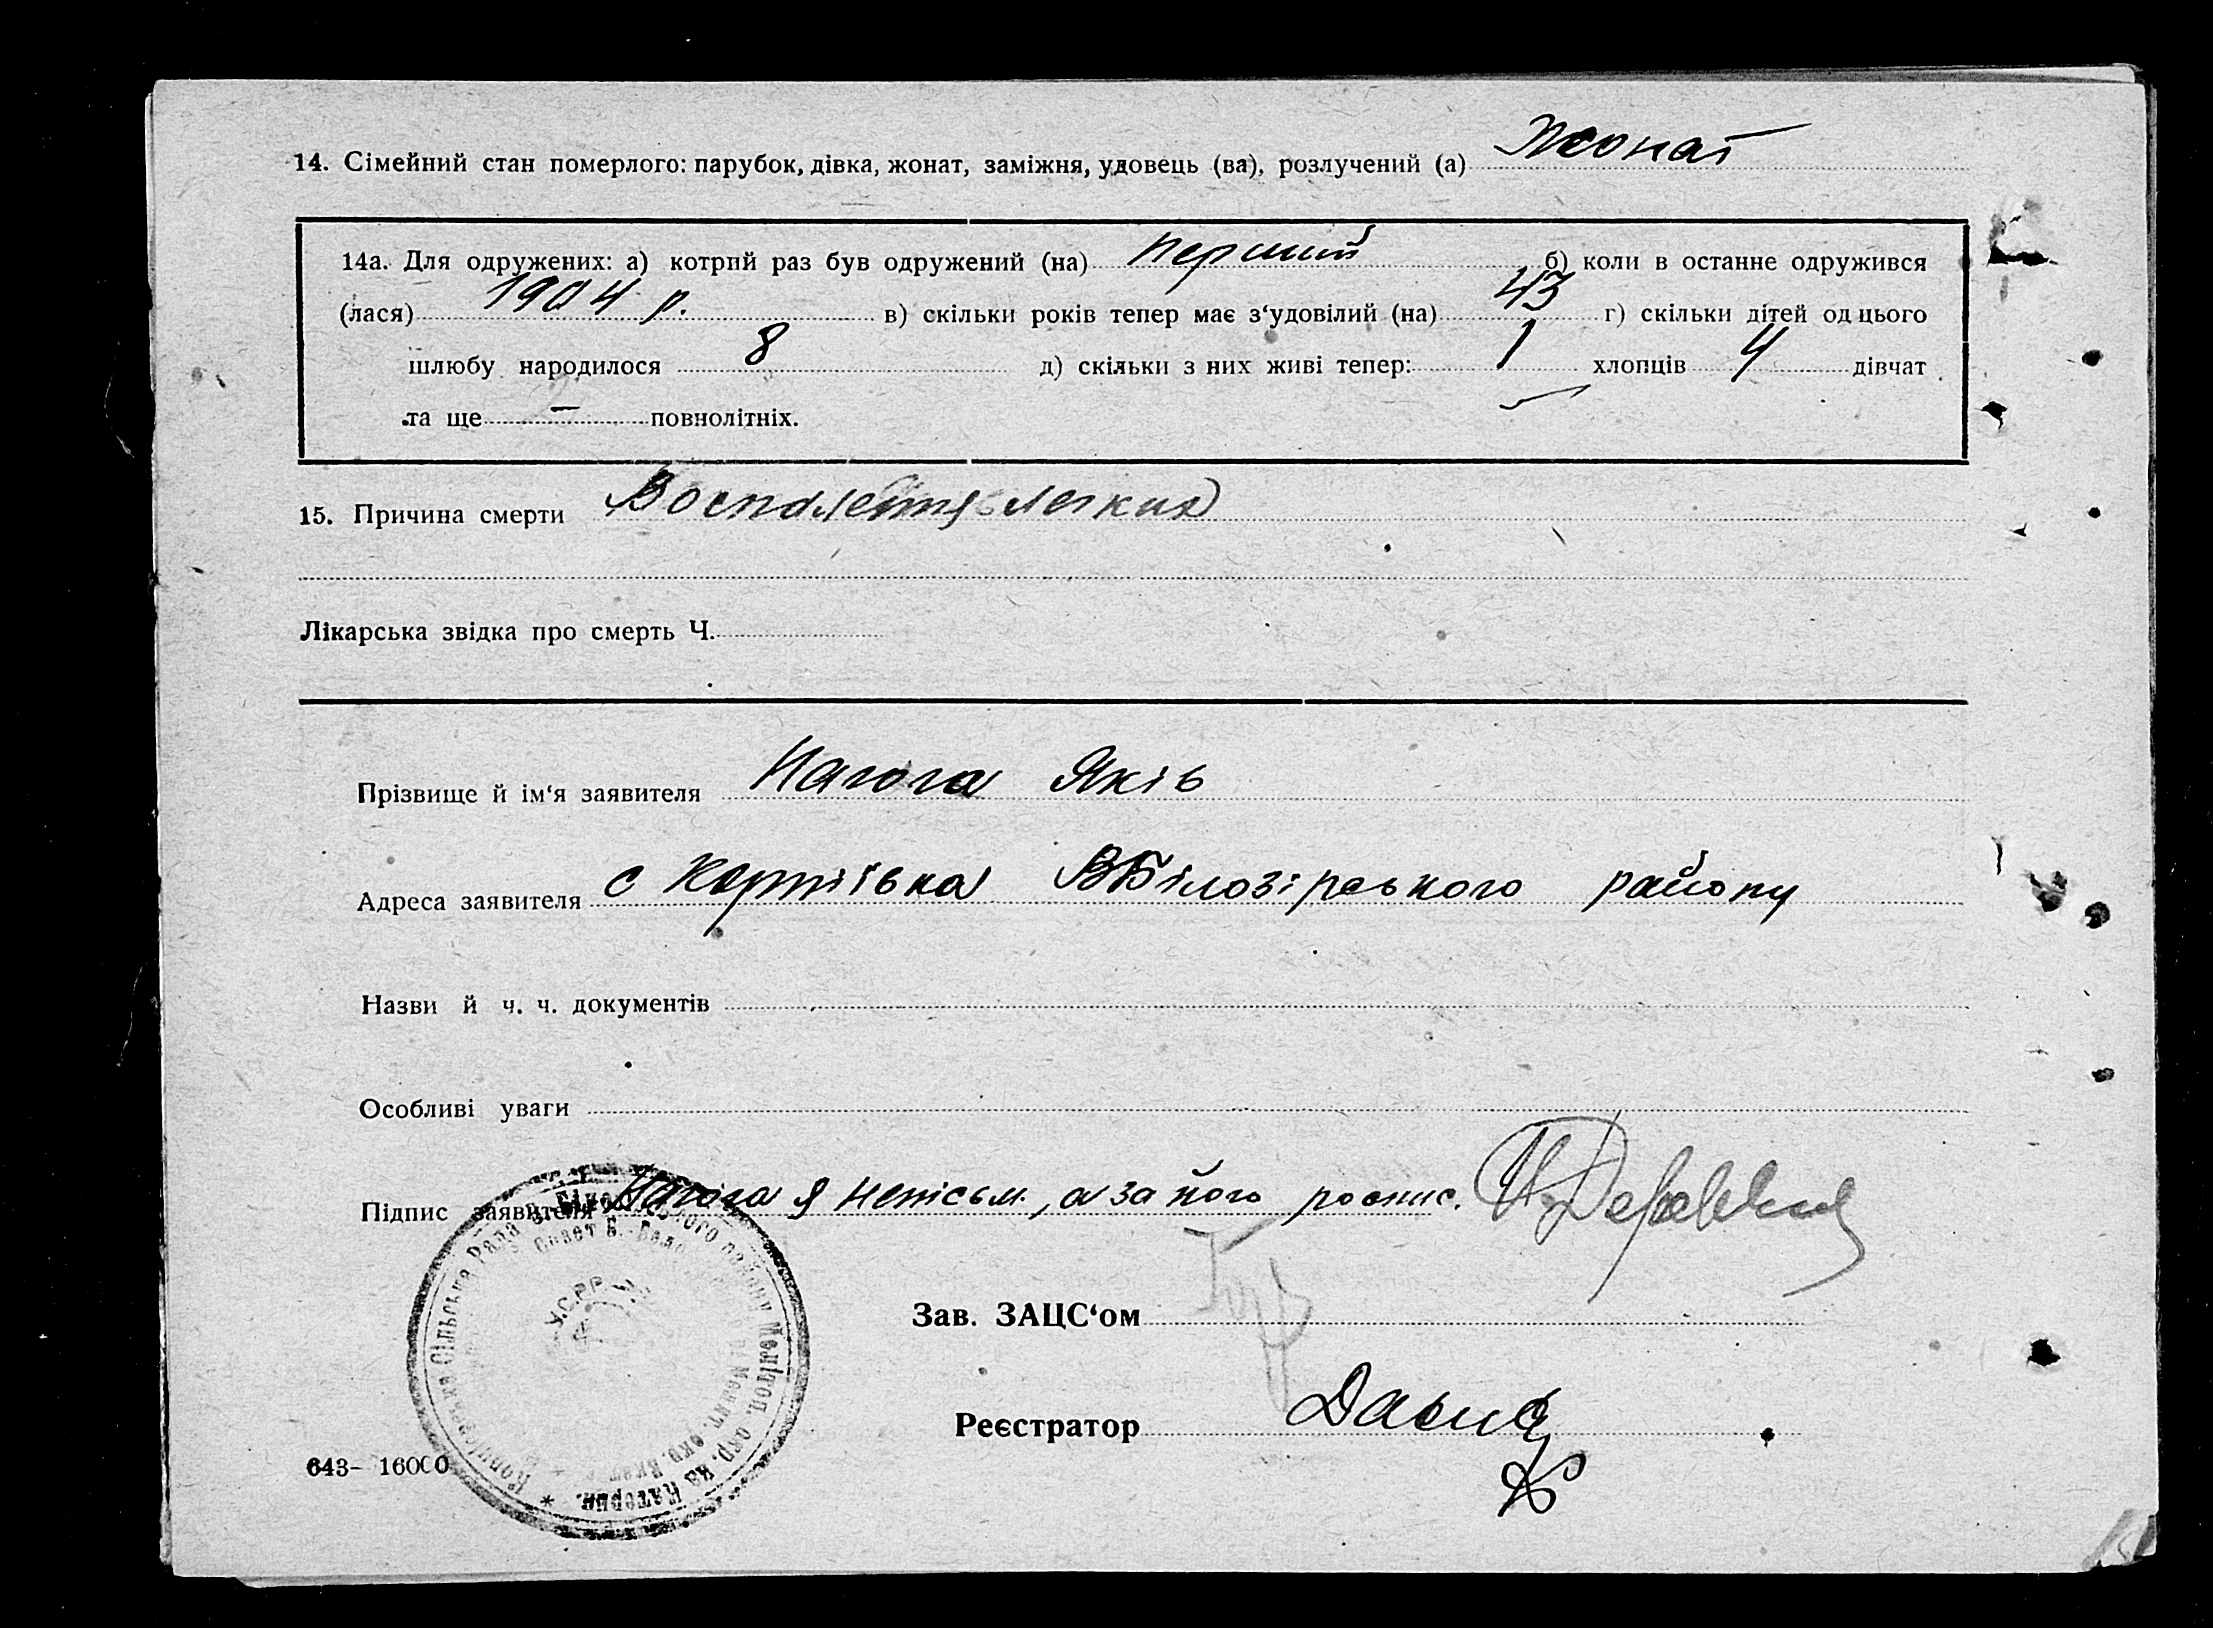 14. Сімейний стан померлого: парубок, дівка, жонат, заміжня, удовець (ва), розлучений (а) Жонат
14а. Для одружених: а) котрий раз був одружений (на) перший б) коли в останне одружився
(лася) 1904 р. в) скільки років тепер має з‘удовілий (на) 43 г) скільки дітей од цього
шлюбу народилося 8 д) скільки з них живі тепер: 1 хлопців 4 дівчат
та ще — повнолітніх.
15. Причина смерти Воспаления легких
Лікарська звідка про смерть Ч.
Прізвище й ім‘я заявителя Нагога Яків
Адреса заявителя с ВБілозірського району
Назви й ч. ч. документів
Особливі уваги
Підпис заявителя Нагога Я неписьм., а за його роспис.
Зав. ЗАЦС‘ом
Реєстратор
643- 16000
Сільська Рада району Мелітоп. окр. на Катерин.
У.С.Р.Р.